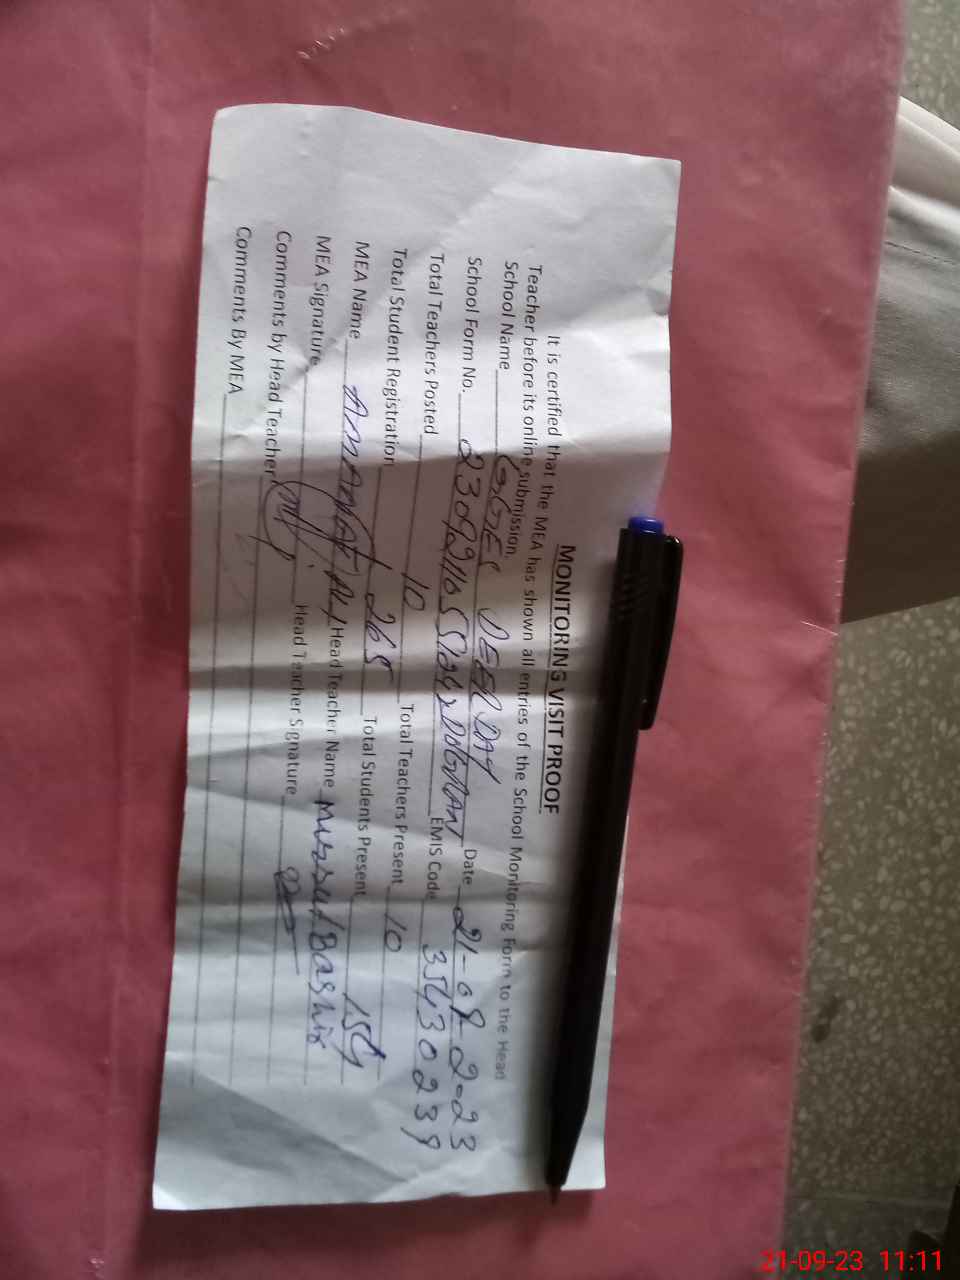 MONITORING VISIT PROOF
It is certified that the MEA has shown all entries of the School Monitoring Form to the Head
Teacher before its online submission.
School Name Date 21-09-2023
School Form No. EMIS Code 35430239
Total Teachers Posted 10 Total Teachers Present 10
Total Student Registration 265 Total Students Present 154
MEA Name AMANAT ALI Head Teacher Name Mussrat Bashir
MEA Signature Head Teacher Signature
Comments by Head Teacher
Comments By MEA
21-09-23 11:11